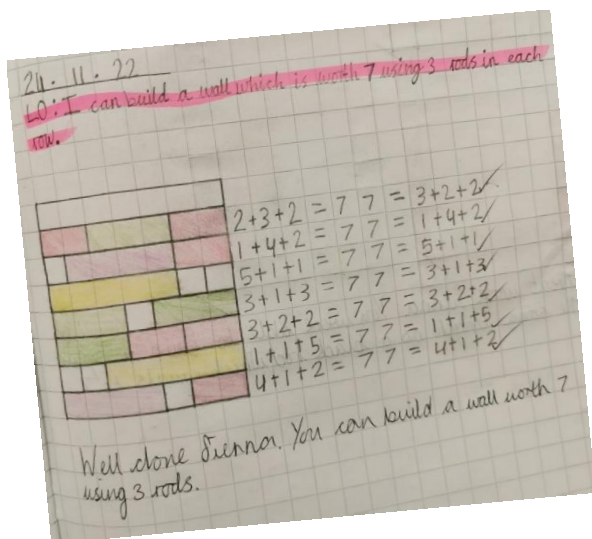 24.11.22
LO: I can build a wall which is worth 7 using 3 rods in each
row.
2+3+2 = 7 7 = 3+2+2 ✓
1+4+2 = 7 7 = 1+4+2 ✓
5+1+1 = 7 7 = 5+1+1 ✓
3+1+3 = 7 7 = 3+1+3 ✓
3+2+2 = 7 7 = 3+2+2 ✓
1+1+5 = 7 7 = 1+1+5 ✓
4+1+2 = 7 7 = 4+1+2 ✓
Well done Sienna. You can build a wall worth 7
using 3 rods.